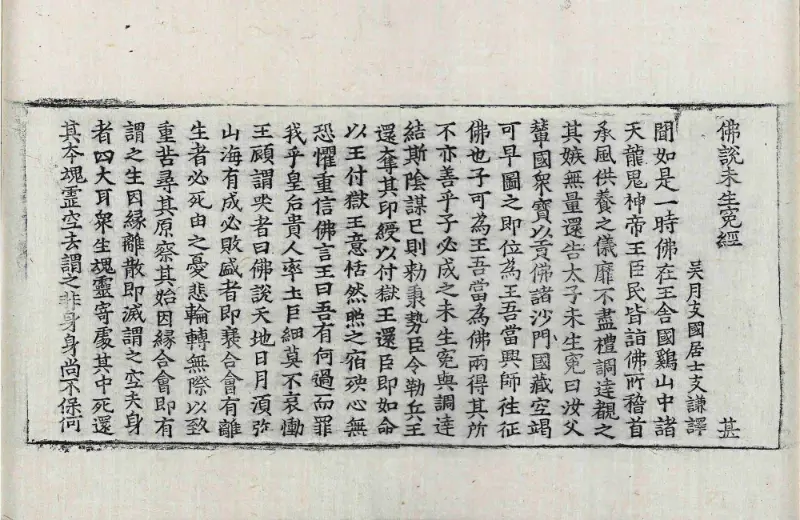 佛說未生冤經　甚
吳月支國居士支謙譯
聞如是一時佛在王舍國鷄山中諸
天龍鬼神帝王臣民皆詣佛所稽首
承風供養之儀靡不盡禮調達覩之
其嫉無量還告太子未生冤曰汝父
輦國衆寶以貢佛諸沙門國藏空竭
可早圖之即位為王吾當興師往征
佛也子可為王吾當為佛兩得其所
不亦善乎子必成之未生冤與調達
結斯陰謀已則勑秉勢臣令勒兵王
還奪其印綬以付獄王還臣即如命
以王付獄王意恬然照之宿殃心無
恐懼重信佛言王曰吾有何過而罪
我乎皇后貴人率土巨細莫不哀慟
王顧謂哭者曰佛說天地日月須弥
山海有成必敗盛者即衰合會有離
生者必死由之憂悲輪轉無際以致
重苦尋其原察其始因緣合會即有
謂之生因緣離散即滅謂之空夫身
者四大耳衆生塊靈寄處其中死還
其本塊靈空去謂之非身身尚不保何